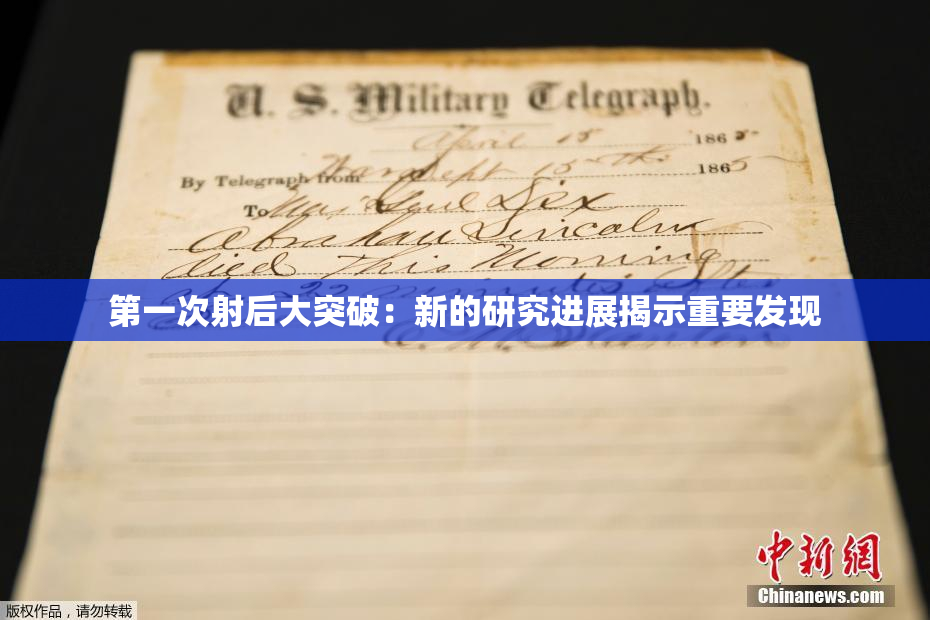 U. S. Military Telegraph.
April 15 1865-
By Telegraph from War Dept 15th 1865
To Maj Genl Dix
Abraham Lincoln
died This Morning
22 minutes after
第一次射后大突破：新的研究进展揭示重要发现
E. M. Stanton
中新網
Chinanews.com
版权作品，请勿转载